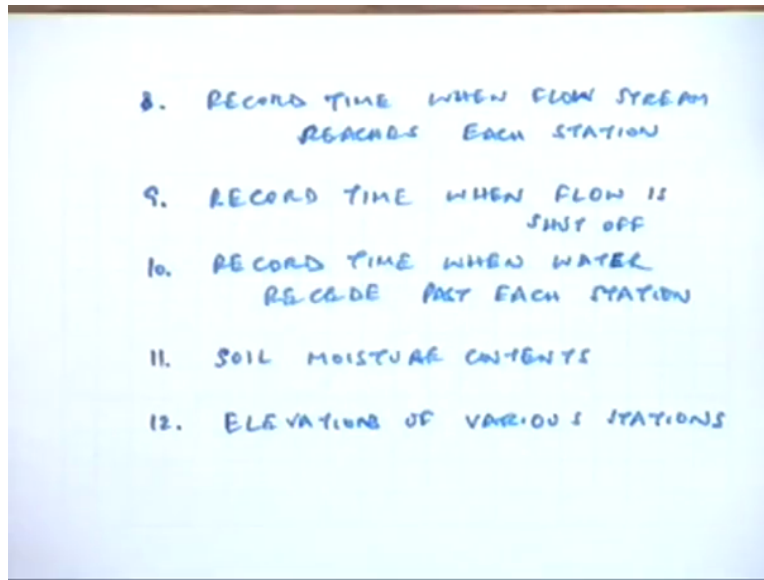 8. RECORD TIME WHEN FLOW STREAM
REACHES EACH STATION
9. RECORD TIME WHEN FLOW IS
SHUT OFF
10. RECORD TIME WHEN WATER
RECEDE PAST EACH STATION
11. SOIL MOISTURE CONTENTS
12. ELEVATIONS OF VARIOUS STATIONS